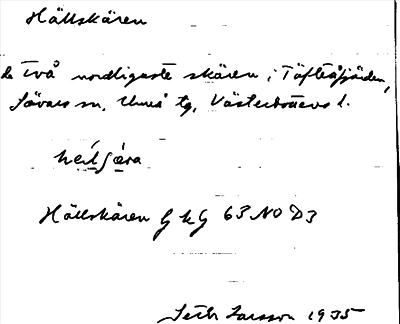 Hällskären
de två nordligaste skären i Täfteåfjärden,
Sävars sn, Umeå tg, Västerbottens l.
Hällskären GkG 63 NO D3
Seth Larsson 1935